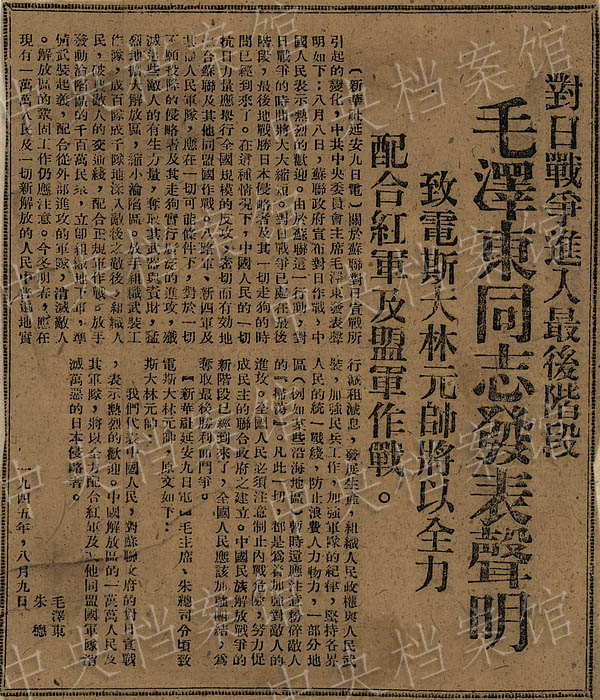 對日戰爭進入最後階段
毛澤東同志發表聲明
致電斯大林元帥將以全力
配合紅軍及盟軍作戰。
（新華社延安九日電）關於蘇聯對日宣戰所
引起的變化，中共中央委員會主席毛澤東發表聲
明如下：八月八日，蘇聯政府宣布對日作戰，中
國人民表示熱烈的歡迎。由於蘇聯這一行動，對
日戰爭的時間將大大縮短。對日戰爭已處在最後
階段，最後地戰勝日本侵略者及其一切走狗的時
間已經到來了。在這種情況下，中國人民的一切
抗日力量應舉行全國規模的反攻，密切而有效地
配合蘇聯及其他同盟國作戰。八路軍、新四軍及
其他人民軍隊，應在一切可能條件下，對於一切
不願投降的侵略者及其走狗實行廣泛的進攻，殲
滅這些敵人的有生力量，奪取其武器與資財，猛
烈地擴大解放區，縮小淪陷區。放手組織武裝工
作隊，成百隊成千隊地深入敵後之敵後，組織人
民，破擊敵人的交通綫，配合正規軍作戰。放手
發動淪陷區的千百萬民衆，立即組織地下軍，準
備武裝起義，配合從外部進攻的軍隊，消滅敵人
。解放區的鞏固工作仍應注意。今冬明春，應在
現有一萬萬人民及一切新解放的人民中普遍地實
行減租減息，發展生產，組織人民政權與人民武
裝，加強民兵工作，加強軍隊的紀律，堅持各界
人民的統一戰綫，防止浪費人力物力，一部分地
區（例如某些沿海地區）暫時還應注意粉碎敵人
的「掃蕩」。凡此一切，都是爲着加強對敵人的
進攻。全國人民必須注意制止內戰危險，努力促
成民主的聯合政府之建立。中國民族解放戰爭的
新階段已經到來了，全國人民應該加強團結，爲
奪取最後勝利而鬥爭。
【新華社延安九日電】毛主席、朱總司令頃致
電斯大林元帥，原文如下：
斯大林元帥：
我們代表中國人民，對蘇聯政府的對日宣戰
，表示熱烈的歡迎。中國解放區的一萬萬人民及
其軍隊，將以全力配合紅軍及其他同盟國軍隊消
滅萬惡的日本侵略者。
毛澤東
朱德
一九四五年，八月九日。
中央档案馆